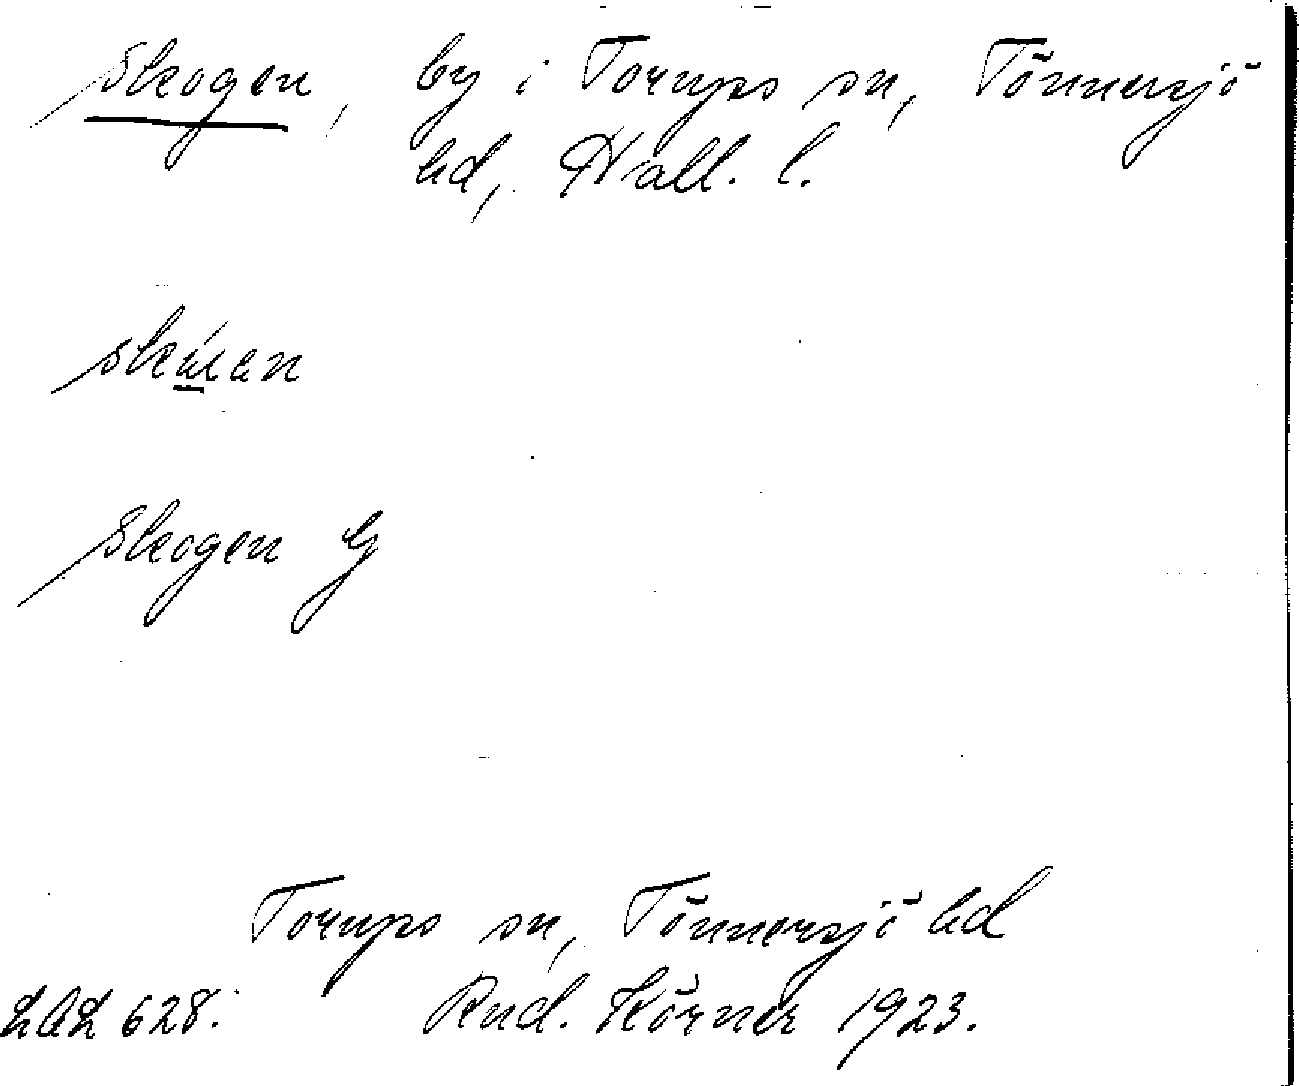 Skogen, by i Torups sn, Tönnersjö
hd, Hall. l.
Skogen G
Torups sn, Tönnersjö hd
LAL 628. Rud. Körner 1923.